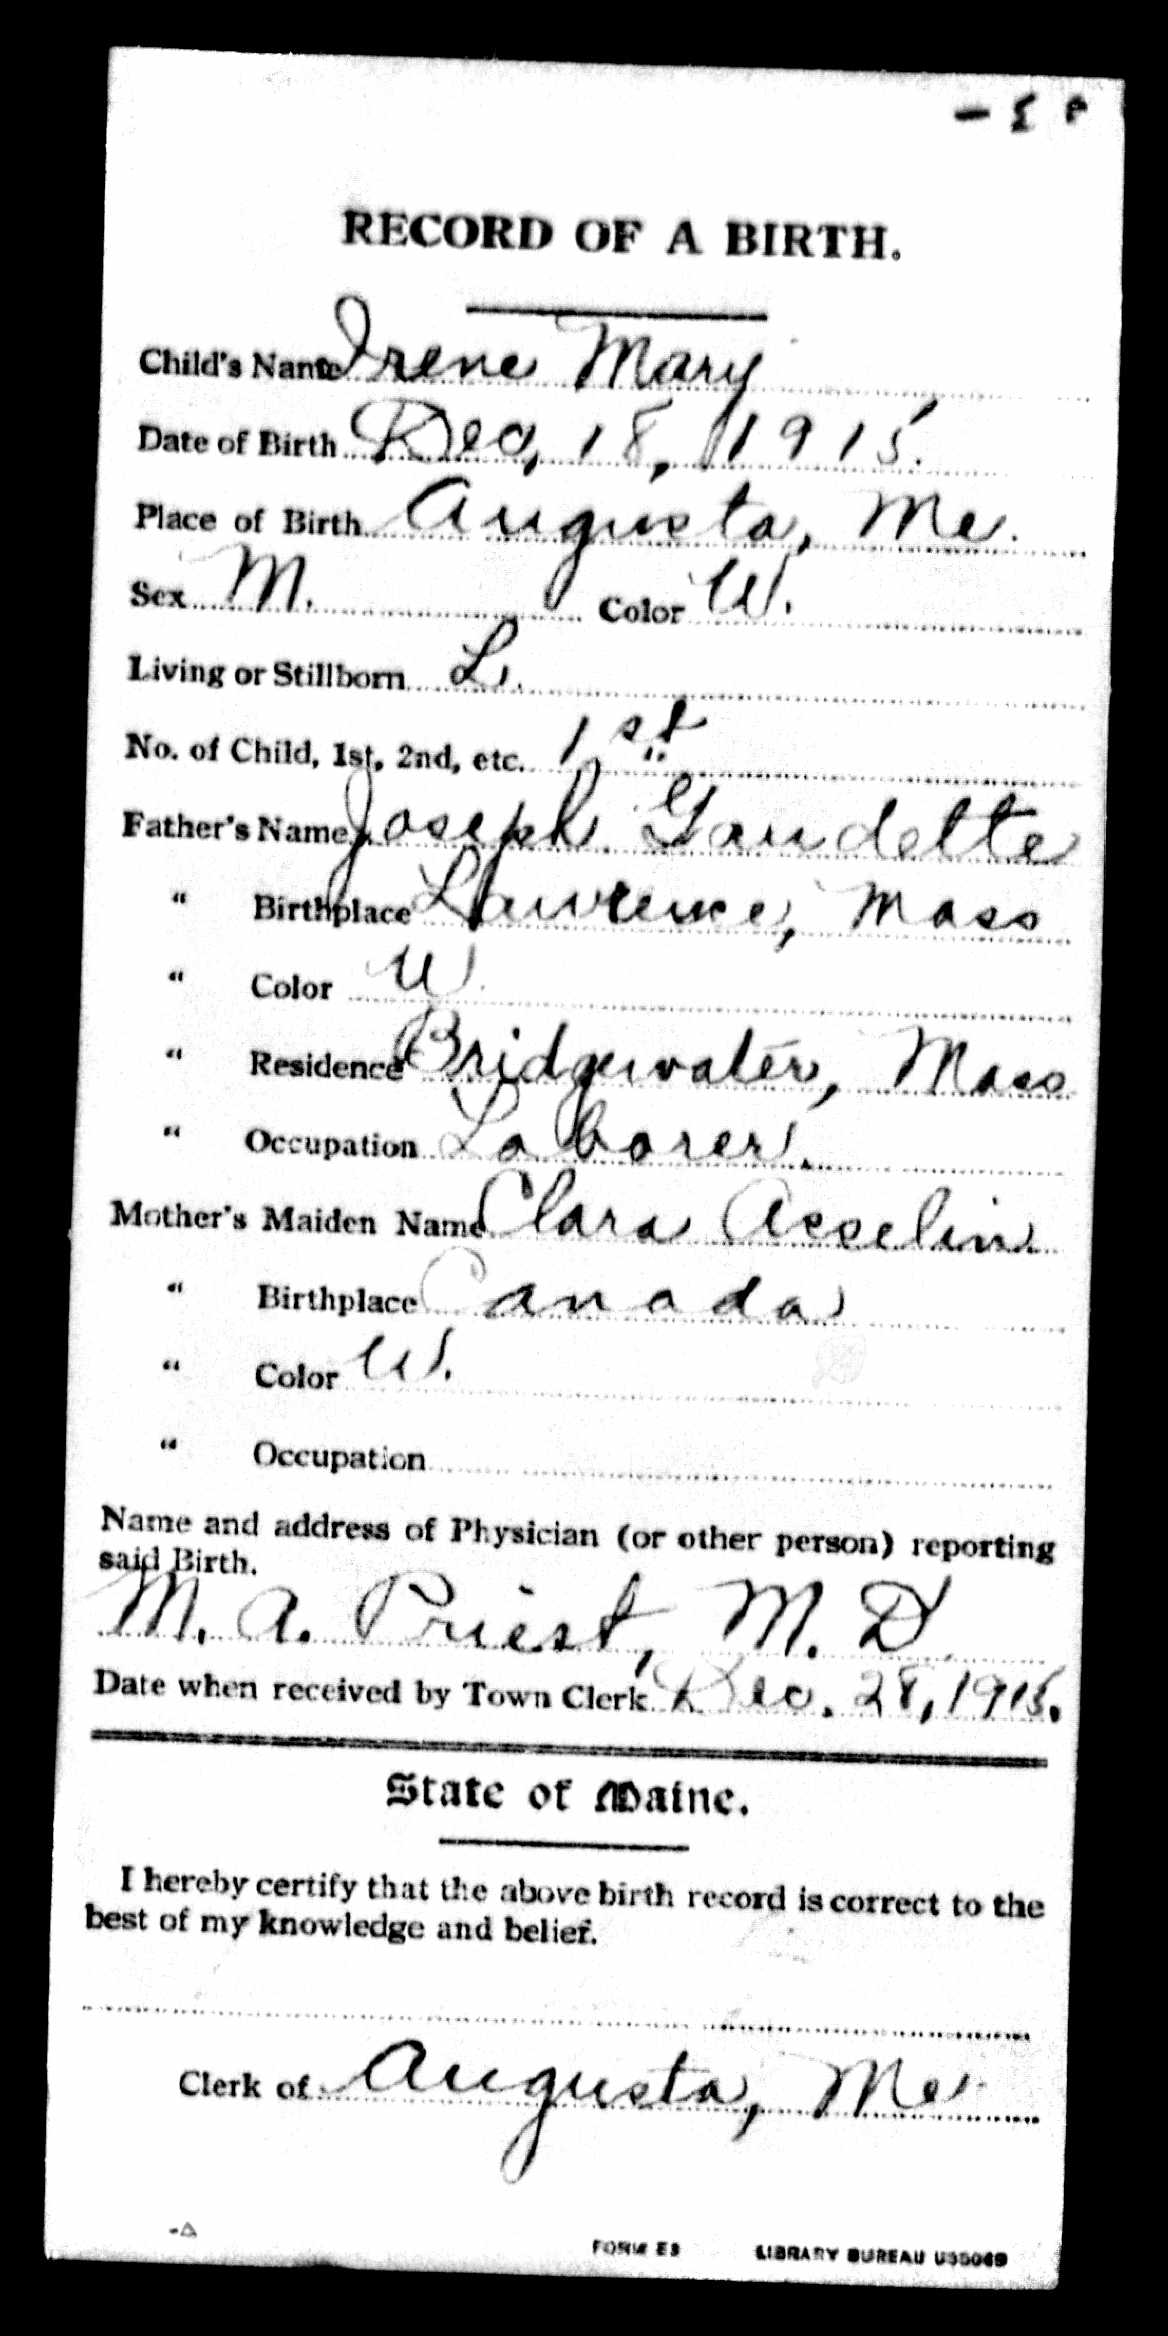 RECORD OF A BIRTH.
Child's Name Irene Mary
Date of Birth Dec, 18, 1915.
Place of Birth Augusta, Me.
Sex M. Color W.
Living or Stillborn L.
No. of Child, 1st, 2nd, etc. 1st
Father's Name Joseph Gaudette
" Birthplace Lawrence, Mass
" Color W.
" Residence Bridgewater, Mass
" Occupation Laborer.
Mother's Maiden Name Clara Asselin
" Birthplace Canada
" Color W.
" Occupation
Name and address of Physician (or other person) reporting
said Birth.
M. A. Priest, M. D.
Date when received by Town Clerk Dec. 28, 1915.
State of Maine.
I hereby certify that the above birth record is correct to the
best of my knowledge and belief.
Clerk of Augusta, Me.
FORM E3 LIBRARY BUREAU